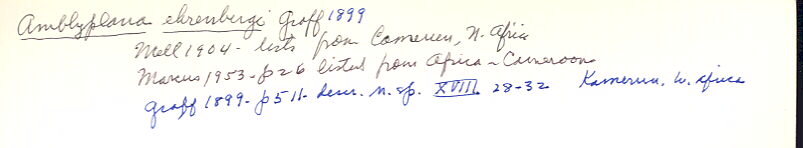 Amblyplana ehrenbergi Graff 1899
Mell 1904 - lists from Cameruu, N. Africa
Marcus 1953 - p 26 listed from Africa - Cameroons
Graff 1899 - p 511 - descr. n. sp. XVIII 28-32 Kamerun, W. Africa